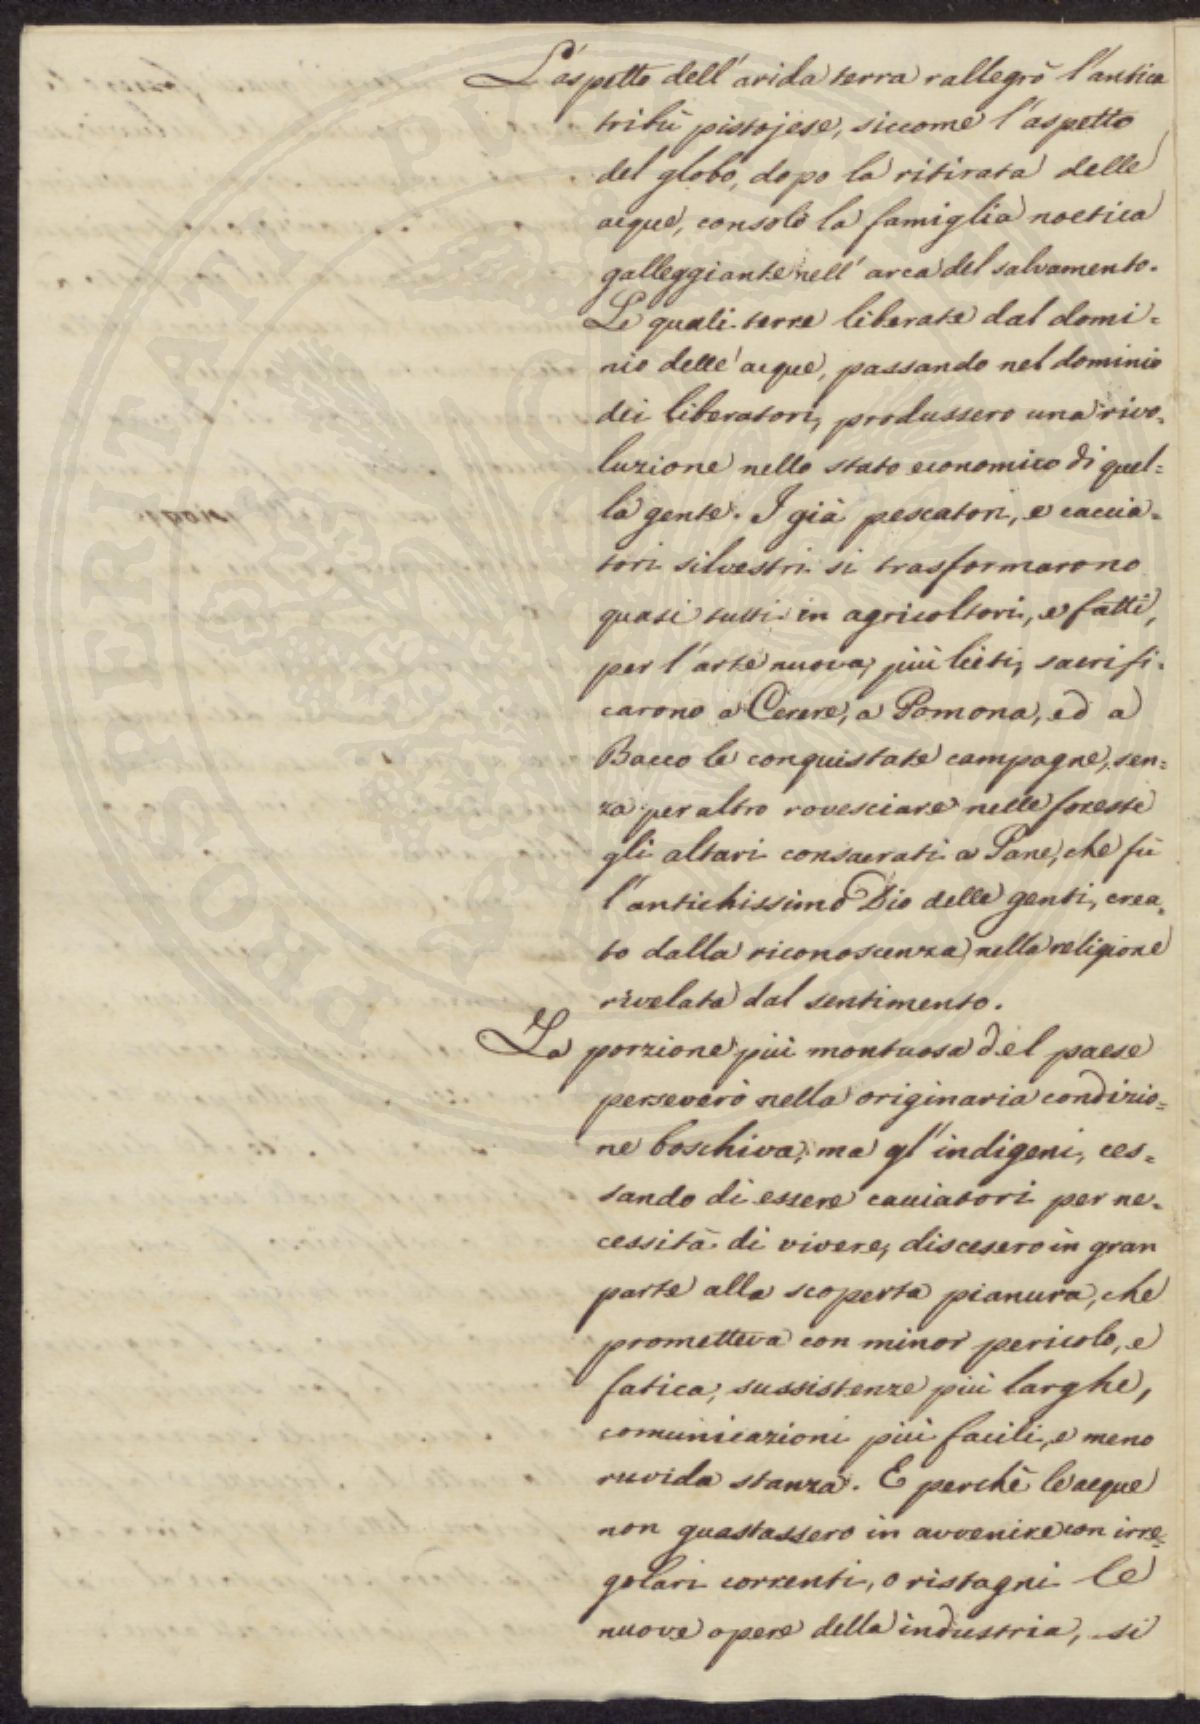 L'aspetto dell'arida terra rallegrò l'antica
tribù pistojese, siccome l'aspetto
del globo, dopo la ritirata delle
acque, consolò la famiglia noetica
galleggiante nell'arca del salvamento.
Le quali terre liberate dal domi=
nio delle acque, passando nel dominio
dei liberatori, produssero una rivo=
luzione nello stato economico di quel=
la gente. I già pescatori, e caccia=
tori silvestri si trasformarono
quasi tutti in agricoltori, e fatti,
per l'arte nuova, più lieti, sacrifi=
carono a Cerere, a Pomona, ed a
Bacco le conquistate campagne, sen=
za per altro rovesciare nelle foreste
gli altari consacrati a Pane, che fù
l'antichissimo Dio delle genti, crea=
to dalla riconoscenza nella religione
rivelata dal sentimento.
La porzione più montuosa del paese
perseverò nella originaria condizio=
ne boschiva, ma gl'indigeni, ces=
sando di essere cacciatori per ne=
cessità di vivere, discesero in gran
parte alla scoperta pianura, che
prometteva con minor pericolo, e
fatica, sussistenze più larghe,
comunicazioni più facili, e meno
ruvida stanza. E perchè le acque
non guastassero in avvenire con irre=
golari correnti, o ristagni le
nuove opere della industria, si
PROSPERITATI PUBLICAE